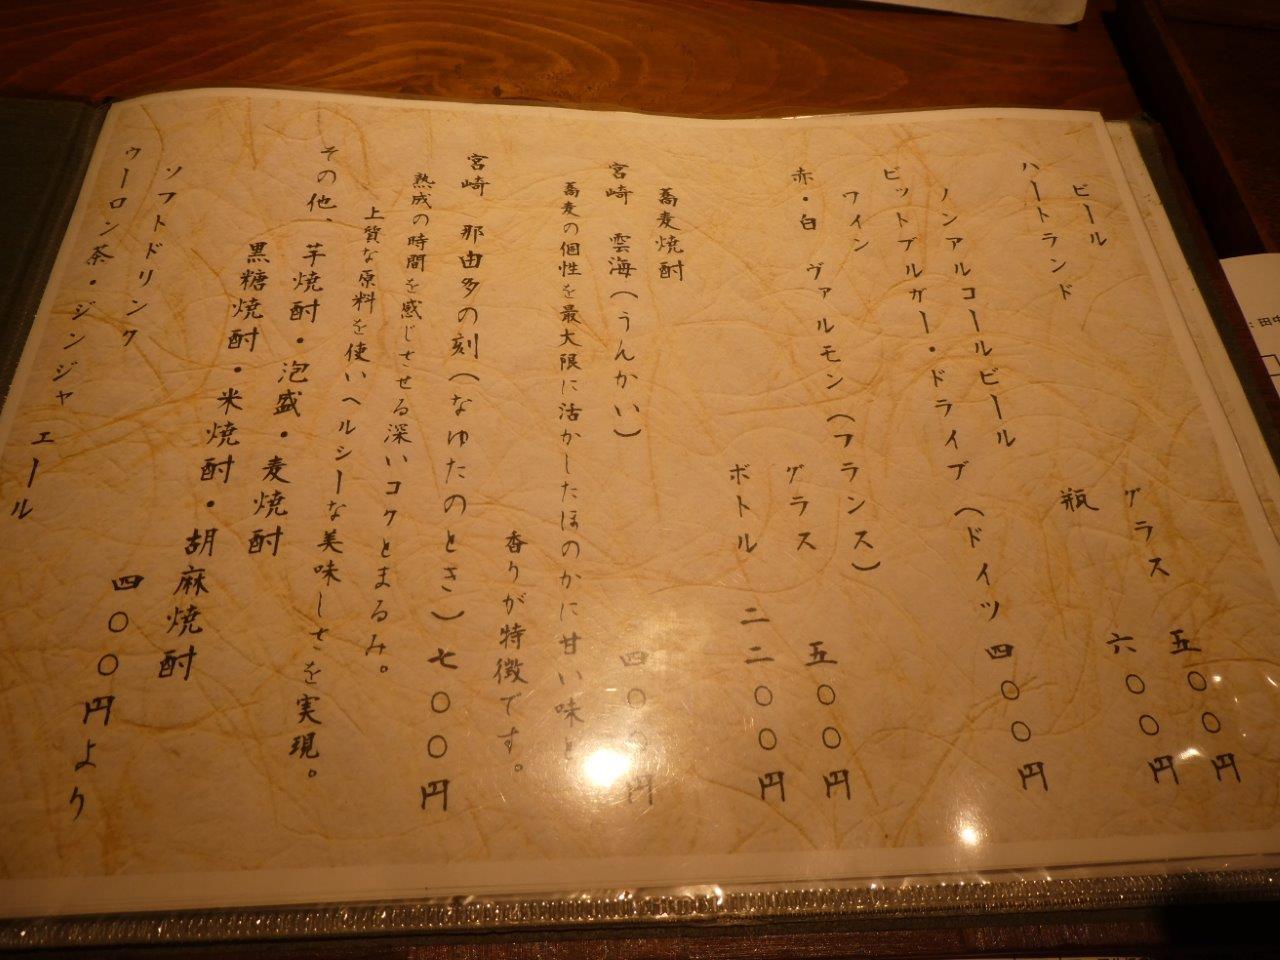 ビール
ハートランド
グラス 五〇〇円
瓶 六〇〇円
ノンアルコールビール
ビットブルガー・ドライブ（ドイツ） 四〇〇円
ワイン
赤・白 ヴァルモン（フランス）
グラス 五〇〇円
ボトル 二二〇〇円
蕎麦焼酎
宮崎 雲海（うんかい） 四〇〇円
蕎麦の個性を最大限に活かしたほのかに甘い味と
香りが特徴です。
宮崎 那由多の刻（なゆたのとき） 七〇〇円
熟成の時間を感じさせる深いコクとまるみ。
上質な原料を使いヘルシーな美味しさを実現。
その他、芋焼酎・泡盛・麦焼酎
黒糖焼酎・米焼酎・胡麻焼酎
ソフトドリンク
ウーロン茶・ジンジャエール 四〇〇円より
：田中